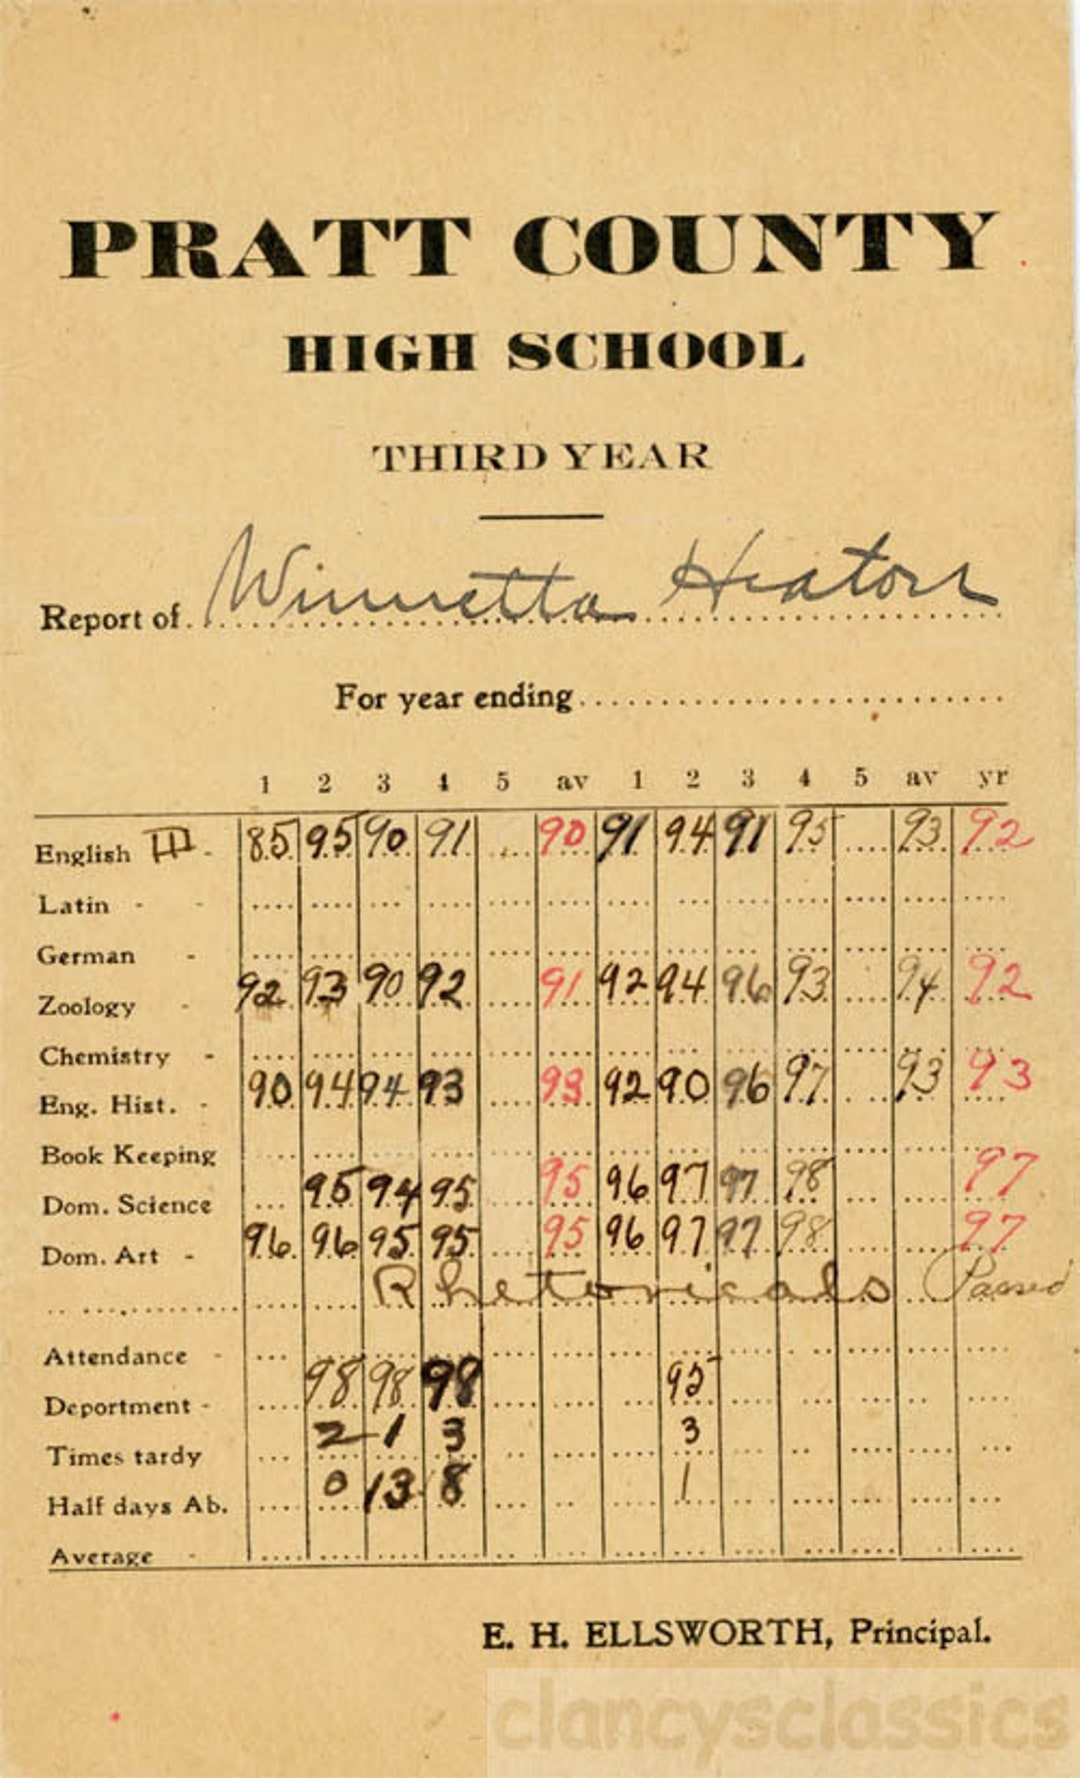 PRATT COUNTY
HIGH SCHOOL
THIRD YEAR
Report of Winnetta Heaton
For year ending
1 2 3 4 5 av 1 2 3 4 5 av yr
English III - 85 95 90 91 90 91 94 91 95 93 92
Latin - -
German -
Zoology - 92 93 90 92 91 92 94 96 93 94 92
Chemistry -
Eng. Hist. - 90 94 94 93 93 92 90 96 97 93 93
Book Keeping
Dom. Science 95 94 95 95 96 97 97 98 97
Dom. Art - 96 96 95 95 95 96 97 97 98 97
Rhetoricals Passed
Attendance -
Deportment - 98 98 98 95
Times tardy 2 1 3 3
Half days Ab. 0 13 8 1
Average -
E. H. ELLSWORTH, Principal.
clancysclassics